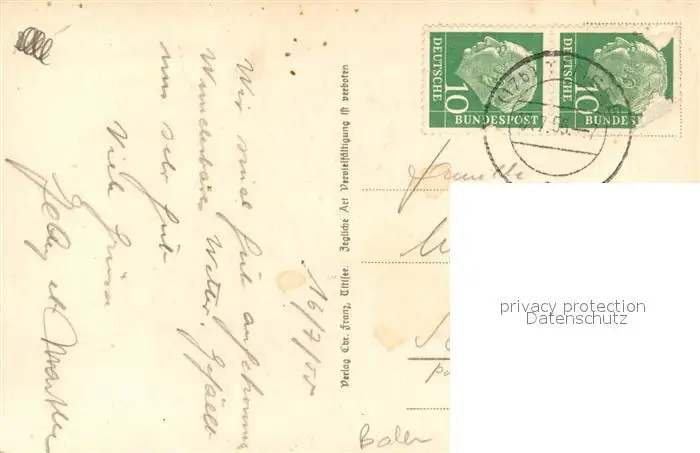 16/7/55
Wir sind gut angekommen
Wunderbares Wetter. Gefällt
uns sehr gut
Viele Grüsse
et
Verlag Chr. Franz, Titisee. Jegliche Art Vervielfältigung ist verboten
DEUTSCHE
10
BUNDESPOST
DEUTSCHE
10
BUNDESPOST
(17b)
7.55
Familie
privacy protection
Datenschutz